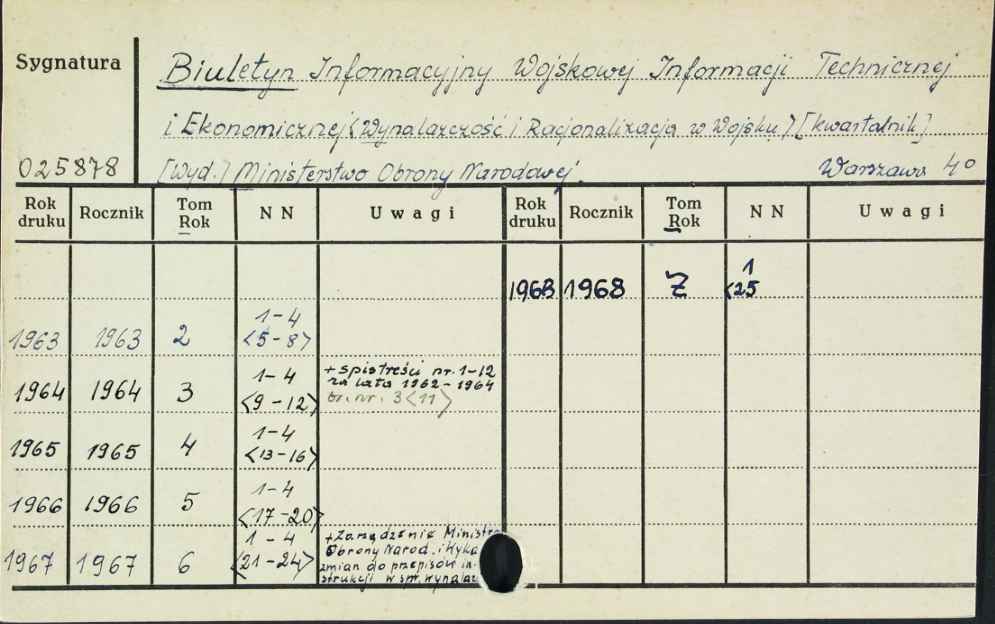 Sygnatura
Biuletyn Informacyjny Wojskowej Informacji Technicznej
i Ekonomicznej (Wynalazczość i Racjonalizacja w Wojsku) [kwartalnik]
025878
[Wyd.] Ministerstwo Obrony Narodowej. Warszawa 4°
Rok druku Rocznik Tom Rok NN Uwagi Rok druku Rocznik Tom Rok NN Uwagi
1968 1968 7 1 <25
1963 1963 2 1-4 <5-8>
1964 1964 3 1-4 <9-12> + spis treści nr. 1-12
za lata 1962-1964
br. nr. 3<11>
1965 1965 4 1-4 <13-16>
1966 1966 5 1-4 <17-20>
1967 1967 6 1-4 <21-24> + Zarządzenie Ministra
Obrony Narod. i Wyka
zmian do przepisów in-
strukcji w spr. wynalaz